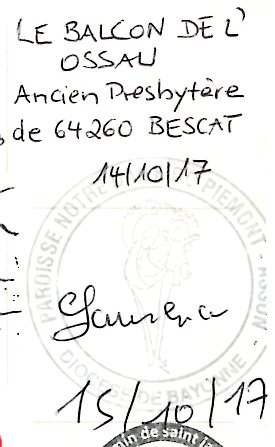 LE BALCON DE L'
OSSAU
Ancien Presbytère
de 64260 BESCAT
14/10/17
PAROISSE NOTRE PIEMONT - ASSON
DIOCESE DE BAYONNE
15/10/17
de saint